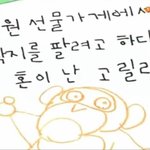 원 선물가게에서
딱지를 팔려고 하다
혼이 난 고릴라